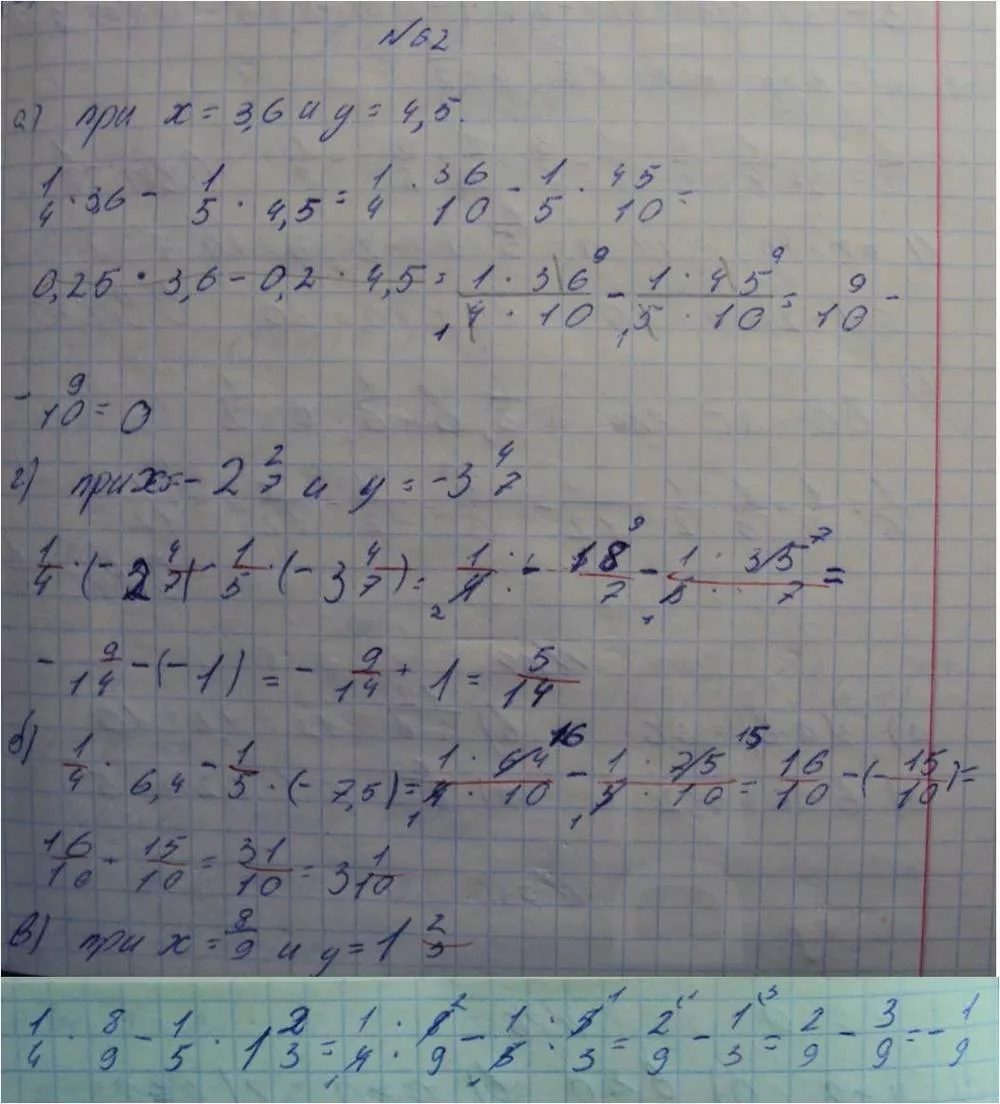 №62
а) при х = 3,6 и у = 4,5.
1/4 · 3,6 - 1/5 · 4,5 = 1/4 · 36/10 - 1/5 · 45/10 =
0,25 · 3,6 - 0,2 · 4,5 = 1 · 36 9/1 4 · 10 - 1 · 45 9/1 5 · 10 = 9/10 -
- 9/10 = 0
г) при х = - 2 2/7 и у = -3 4/7
1/4 · (- 2 4/7) - 1/5 · (- 3 4/7) = 1/2 4 · - 18 9/7 - 1 · 35 7/1 5 · 7 =
- 9/14 - (- 1) = - 9/14 + 1 = 5/14
б) 1/4 · 6,4 - 1/5 · (- 7,5) = 1 · 64 16/1 4 · 10 - 1 · 75 15/1 5 · 10 = 16/10 - (- 15/10) =
16/10 + 15/10 = 31/10 = 3 1/10
в) при х = 8/9 и у = 1 2/3
1/4 · 8/9 - 1/5 · 1 2/3 = 1 · 8 2/1 4 · 9 - 1 · 5 1/1 5 · 3 = 2/9 - 1/3 = 2/9 - 3/9 = - 1/9